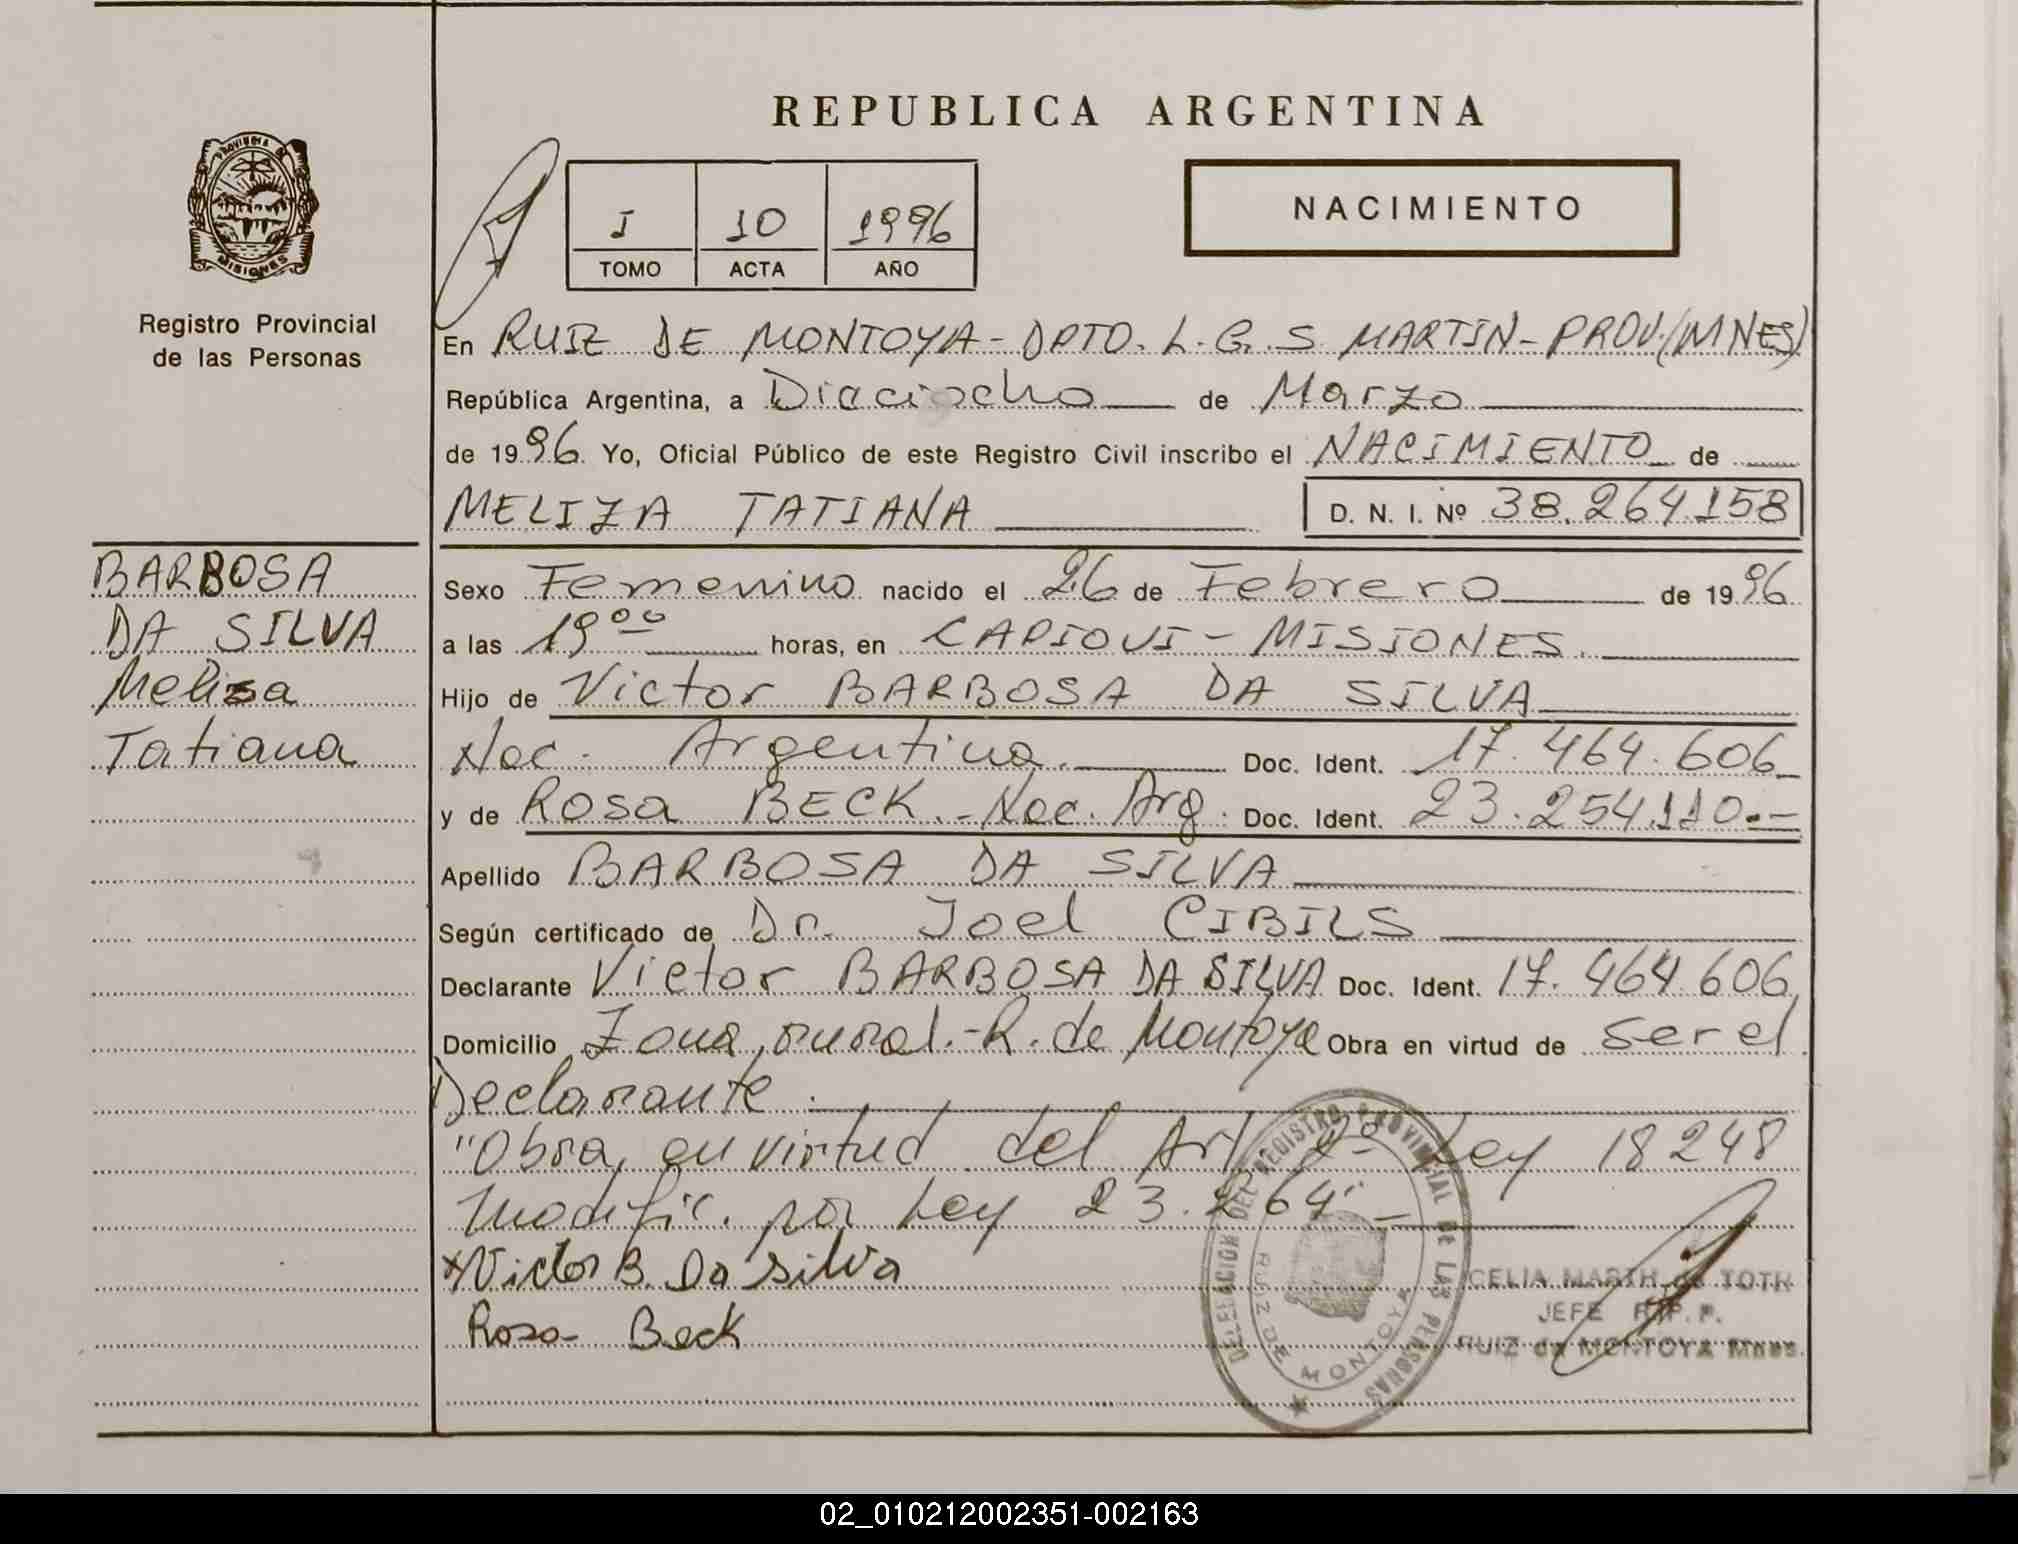 REPUBLICA ARGENTINA
PROVINCIA DE
MISIONES
Registro Provincial
de las Personas
I 10 1996
TOMO ACTA AÑO
NACIMIENTO
En RUIZ DE MONTOYA - DPTO. L. G. S. MARTIN - PROV. (MNES)
República Argentina, a Dieciocho de Marzo
de 1996 Yo, Oficial Público de este Registro Civil inscribo el NACIMIENTO de
MELIZA TATIANA D. N. I. Nº 38.264.158
BARBOSA
DA SILVA
Meliza
Tatiana
Sexo Femenino nacido el 26 de Febrero de 1996
a las 19⁰⁰ horas, en CAPIOVI - MISIONES.
Hijo de Victor BARBOSA DA SILVA
Nac. Argentina. Doc. Ident. 17.464.606
y de Rosa BECK. - Nac. Arg. Doc. Ident. 23.254.110.-
Apellido BARBOSA DA SILVA
Según certificado de Dr. Joel CIBILS
Declarante Victor BARBOSA DA SILVA Doc. Ident. 17.464.606
Domicilio Zona rural.- R. de Montoya Obra en virtud de ser el
Declarante.
"Obra, en virtud del Art. 2º Ley 18248
modific. por Ley 23.264" -
x Victor B. Da Silva
Rosa Beck
DELEGACION DEL REGISTRO PROVINCIAL DE LAS PERSONAS
RUIZ DE MONTOYA
CELIA de TOTH
JEFE R.P.P.
RUIZ de MONTOYA Mnes.
02_010212002351-002163